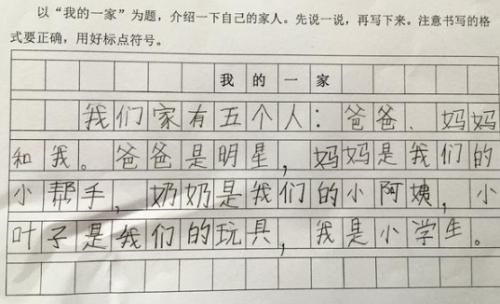 以“我的一家”为题，介绍一下自己的家人。先说一说，再写下来。注意书写的格
式要正确，用好标点符号。
我的一家
我们家有五个人：爸爸、妈妈
和我。爸爸是明星，妈妈是我们的
小帮手，奶奶是我们的小阿姨，小
叶子是我们的玩具，我是小学生。